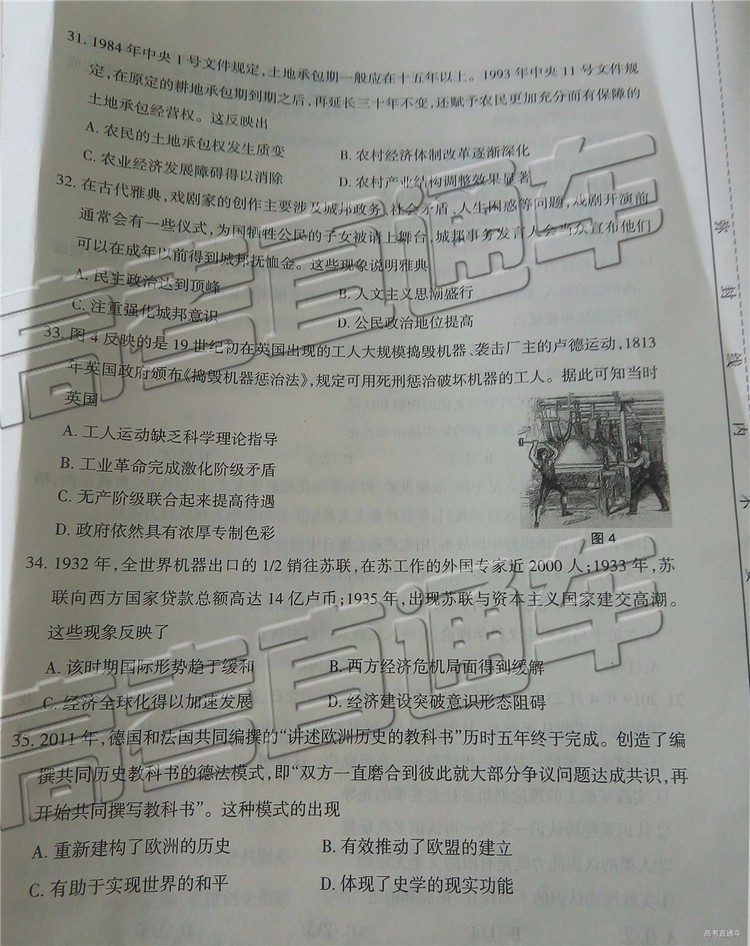 31. 1984年中央1号文件规定,土地承包期一般应在十五年以上。1993年中央11号文件规
定,在原定的耕地承包期到期之后,再延长三十年不变,还赋予农民更加充分而有保障的
土地承包经营权。这反映出
A. 农民的土地承包权发生质变 B. 农村经济体制改革逐渐深化
C. 农业经济发展障碍得以消除 D. 农村产业结构调整效果显著
32. 在古代雅典,戏剧家的创作主要涉及城邦政务、社会矛盾、人生困惑等问题,戏剧开演前
通常会有一些仪式,为国牺牲公民的子女被请上舞台,城邦事务发言人会当众宣布他们
可以在成年以前得到城邦抚恤金。这些现象说明雅典
A. 民主政治达到顶峰 B. 人文主义思潮盛行
C. 注重强化城邦意识 D. 公民政治地位提高
33. 图4反映的是19世纪初在英国出现的工人大规模捣毁机器、袭击厂主的卢德运动,1813
年英国政府颁布《捣毁机器惩治法》,规定可用死刑惩治破坏机器的工人。据此可知当时
英国
A. 工人运动缺乏科学理论指导
B. 工业革命完成激化阶级矛盾
C. 无产阶级联合起来提高待遇
D. 政府依然具有浓厚专制色彩
图4
34. 1932年,全世界机器出口的1/2销往苏联,在苏工作的外国专家近2000人;1933年,苏
联向西方国家贷款总额高达14亿卢币;1935年,出现苏联与资本主义国家建交高潮。
这些现象反映了
A. 该时期国际形势趋于缓和 B. 西方经济危机局面得到缓解
C. 经济全球化得以加速发展 D. 经济建设突破意识形态阻碍
35. 2011年,德国和法国共同编撰的“讲述欧洲历史的教科书”历时五年终于完成。创造了编
撰共同历史教科书的德法模式,即“双方一直磨合到彼此就大部分争议问题达成共识,再
开始共同撰写教科书”。这种模式的出现
A. 重新建构了欧洲的历史 B. 有效推动了欧盟的建立
C. 有助于实现世界的和平 D. 体现了史学的现实功能
高考直通车
高考直通车
封
线
内
不
高考直通车